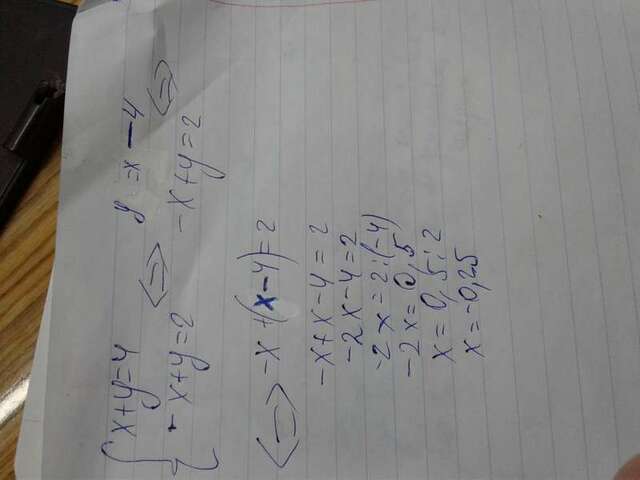 { x+y=4 <=> y =x-4 <=>
-x+y=2 -x+y=2
<=> -x+(x-4)=2
-x+x-4=2
-2x-4=2
-2x=2:(-4)
-2x=0,5
x=0,5:2
x=-0,25